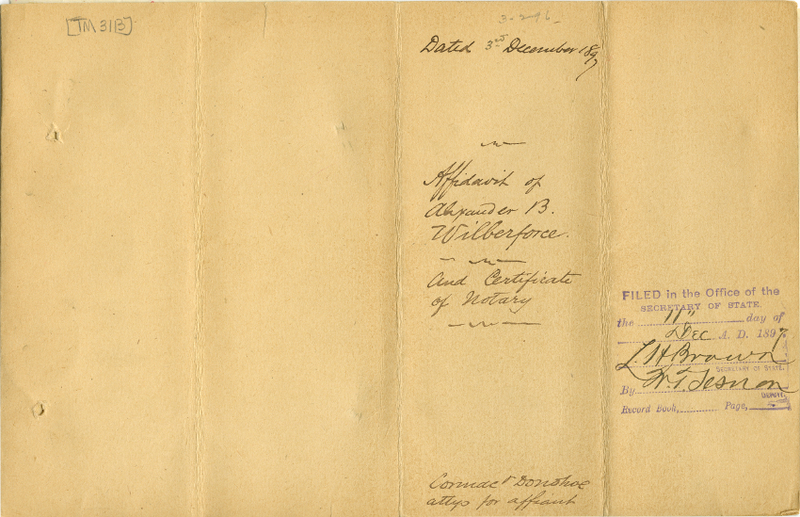 [TM 31B]
3-2-96
Dated 3rd December 1897
Affidavit of
Alexander B.
Wilberforce.
And Certificate
of Notary
Cormac & Donohoe
attys for affiant
FILED in the Office of the
SECRETARY OF STATE.
the 11" day of
Dec A. D. 1897
L. H. Brown
SECRETARY OF STATE.
By
DEPUTY.
Record Book, Page,